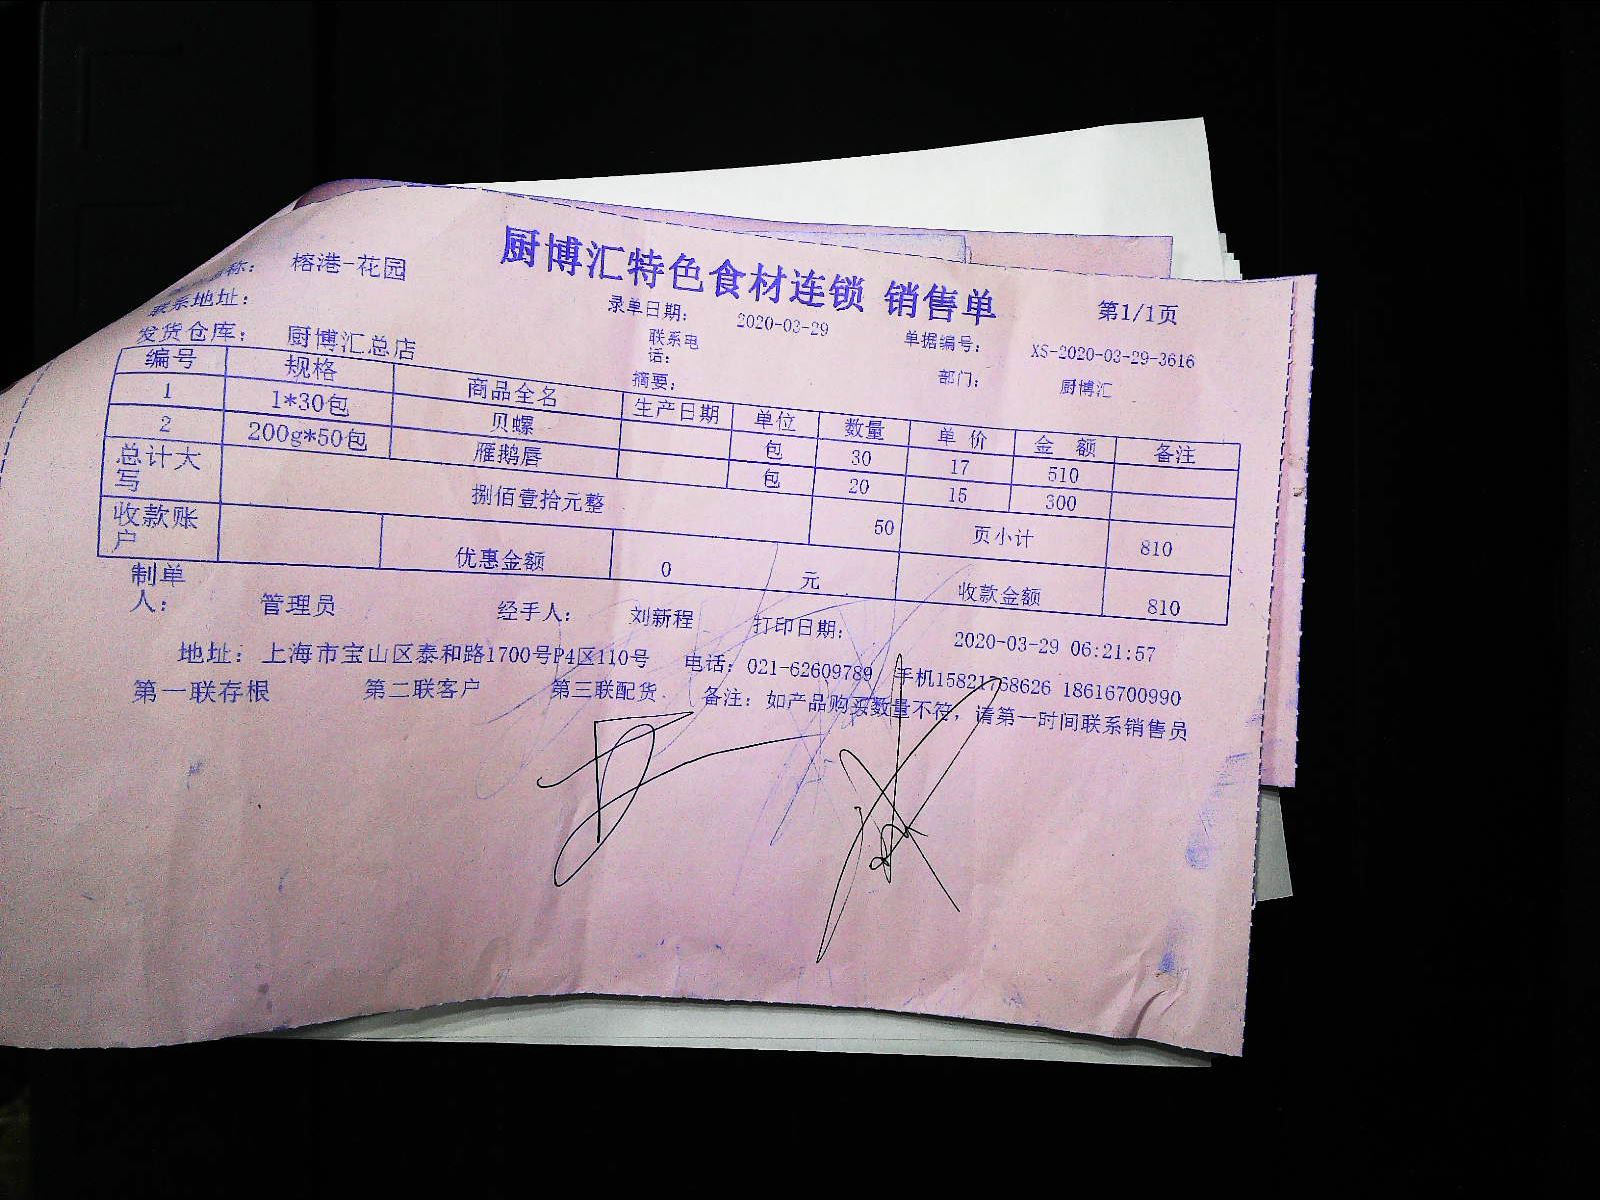 厨博汇特色食材连锁 销售单
称: 榕港-花园 录单日期: 2020-03-29 单据编号: XS-2020-03-29-3616 第1/1页
联系地址: 联系电话: 部门: 厨博汇
发货仓库: 厨博汇总店 摘要:
编号 规格 商品全名 生产日期 单位 数量 单价 金额 备注
1 1*30包 贝螺 包 30 17 510
2 200g*50包 雁鹅唇 包 20 15 300
总计大写 捌佰壹拾元整 50 页小计 810
收款账户 优惠金额 0 元 收款金额 810
制单人: 管理员 经手人: 刘新程 打印日期: 2020-03-29 06:21:57
地址: 上海市宝山区泰和路1700号P4区110号 电话: 021-62609789 手机15821768626 18616700990
第一联存根 第二联客户 第三联配货. 备注: 如产品购买数量不符, 请第一时间联系销售员